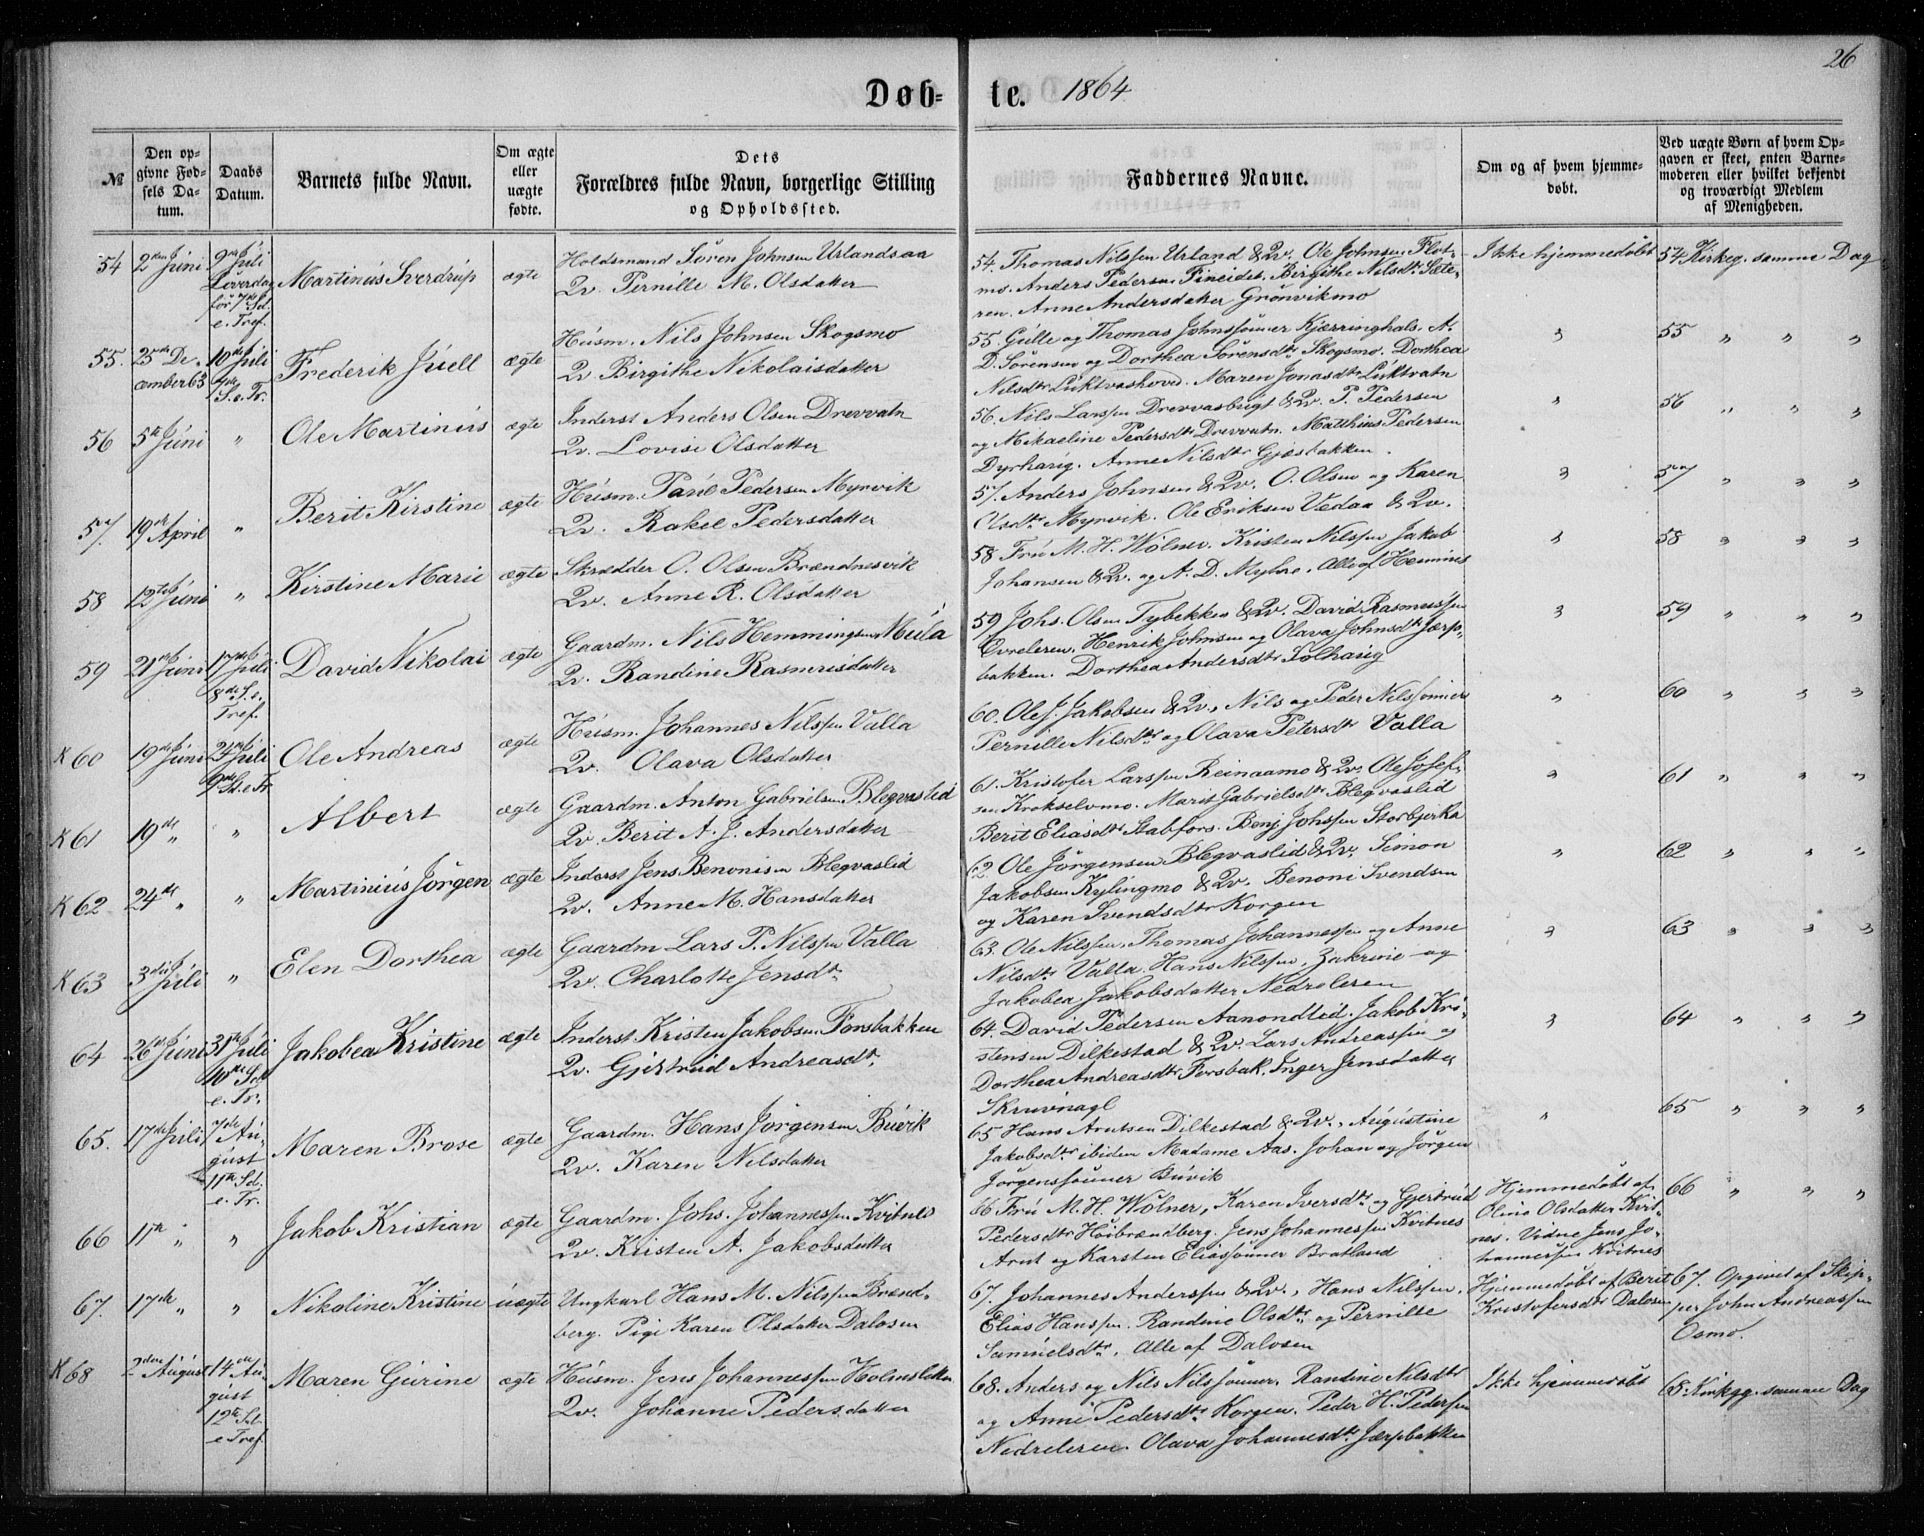 26
Døb-
te. 1864
№
Den op-
givne Fød-
sels Da-
tum.
Daabs
Datum.
Barnets fulde Navn.
Om ægte
eller
uægte
fødte.
Dets
Forældres fulde Navn, borgerlige Stilling
og Opholdssted.
Faddernes Navne.
Om og af hvem hjemme-
døbt.
Ved uægte Børn af hvem Op-
gaven er skeet, enten Barne-
moderen eller hvilket bekjendt
og troværdigt Medlem
af Menigheden.
54
2den Júni
9de Júli
Løverdag
før 7de Sd.
e. Tref.
Martinús Sverdrúp
ægte
Holdsmand Sören Johnsen Urlandsaa
Qv. Pernille M. Olsdatter
54. Thomas Nilssen Urland & Qv. Ole Johnsen Flot-
mo. Anders Pedersen Fineidet. Birgithe Nilsdtr Sete-
ren. Anne Andersdatter Grönvikmo
Ikke hjemmedöbt
54 Kirkeg. samme Dag
55.
25de De-
cember 63
10de Júli
7de
S. e. Tr.
Frederik Júell
ægte
Húsm. Nils Johnsen Skogsmo
Qv. Birgithe Nikolaisdatter
55. Gúlle og Thomas Johnssönner Kjærringhals. A.
D. Sörensen og Dorthea Sörensdtr Skogsmo. Dorthea
Nilsdtr Lúktvashoved. Maren Jonasdtr Lúktvatn
"
55 " " "
56
5te Júni
"
Ole Martinús
ægte
Inderst Anders Olsen Drevvatn
Qv. Lovise Olsdatter
56. Nils Larssen Drevvasbugt & Qv. P. Pedersen
og Mikaeline Pedersdtr Drevvatn. Matthias Pedersen
Dyrhaúg. Anne Nilsdtr Gjæsbakken.
"
56 " " "
57.
19de April
"
Berit Kirstine
ægte
Húsm. Paúl Pedersen Myrvik
Qv. Rakel Pedersdatter
57. Anders Johnsen & Qv. O. Olsen og Karen
Olsdtr Myrvik. Ole Eriksen Vedaa & Qv.
"
57 " " "
58
12te Júni
"
Kirstine Marie
ægte
Skrædder O. Olsen Brændnesvik
Qv. Anne R. Olsdatter
58 Frú M. H. Wölner. Kristen Nilssen, Jakob
Johansen & Qv. og A. D. Myhre. Alle af Hemnes
"
58 " " "
59
21de Júni
17de Júli
8de S. e.
Tref.
David Nikolai
ægte
Gaardm. Nils Hemmingsen Múla
Qv. Randine Rasmúsdatter
59 Johs. Olsen Tybekken & Qv. David Rasmússen
Övreleren. Henrik Johnsen og Olava Johnsdtr Jærp-
bakken. Dorthea Andersdtr Solhaúg
"
59 " " "
K 60
19de Júni
24de Júli
9de Sd. e. Tr.
Ole Andreas
ægte
Húsm. Johannes Nilssen Valla
Qv. Olava Olsdatter
60. Ole J. Jakobsen & Qv., Nils og Peder Nilssönner
Pernille Nilsdtr og Olava Petersdtr Valla
"
60 " " "
K 61
19de "
"
Albert
ægte
Gaardm. Anton Gabrielsen Blegvaslid
Qv. Berit A. J. Andersdatter
61. Kristofer Larssen Reinaamo & Qv. Ole Josef-
sen Krokselvmo. Marit Gabrielsdtr Blegvaslid
Berit Eliasdtr Stabfors. Benj. Johssen Storbjerka
"
61 " " "
K 62
24de "
"
Martiniús Jörgen
ægte
Inderst Jens Benonisen Blegvaslid
Qv. Anne M. Hansdatter
62 Ole Jörgensen Blegvaslid & Qv. Simon
Jakobsen Kylingmo & Qv. Benoni Svendsen
og Karen Svendsdtr Korgen
"
62 " " "
K 63
3die Júli
"
Elen Dorthea
ægte
Gaardm Lars P. Nilssen Valla
Qv. Charlotte Jensdtr
63. Ole Nilssen, Thomas Johannessen og Anne
Nilsdtr Valla. Hans Nilssen, Zakrine og
Jakobea Jakobsdatter Nedreleren
"
63 " " "
64
26de Júni
31te Júli
10de Sd.
e. Tr.
Jakobea Kristine
ægte
Inderst Kristen Jakobsen Forsbakken
Qv. Gjertrúd Andreasdtr
64. David Pedersen Aanondlid. Jakob Kri-
stensen Dilkestad & Qv. Lars Andreassen og
Dorthea Andreasdtr Forsbak. Inger Jensdatter
Skrúvnagl
"
64 " " "
65.
17de Júli
7de Aú-
gúst
11te Sd.
e. Tr.
Maren Brose
ægte
Gaardm. Hans Jörgensen Búvik
Qv. Karen Nilsdatter
65 Hans Arntsen Dilkestad & Qv., Aúgústine
Jakobsdtr ibidem Madame Aas. Johan og Jörgen
Jörgenssönner Búvik
"
65 " " "
66
11te "
"
Jakob Kristian
ægte
Gaardm. Johs. Johannessen Kvitnes
Qv. Kristen A. Jakobsdatter
66 Frú M. H. Wölner, Karen Iversdtr og Gjertrúd
Pedersdtr Höibrændberg. Jens Johannessen Kvitnes
Arnt og Karsten Eliassönner Bratland
Hjemmedöbt af
Oline Olsdatter Kvit-
nes. Vidne Jens Jo-
hannessen Kvitnes
66 " " "
67.
17de "
"
Nikoline Kristine
úægte
Ungkarl Hans M. Nilssen Brænd-
berg. Pige Karen Olsdatter Dalosen
67. Johannes Anderssen & Qv., Hans Nilssen,
Elias Hanssen. Randine Olsdtr og Pernille
Samúelsdtr. Alle af Dalosen
Hjemmedöbt af Berit
Kristofersdtr Dalosen
67. Opgivet af Skip-
per John Andreassen
Osmo.
K 68
2den Aúgúst
14de Aú-
gúst
12te Sd.
e Tref.
Maren Gúrine
ægte
Húsm. Jens Johannessen Holmsletten
Qv. Johanne Pedersdatter
68. Anders og Nils Nilssönner. Randine Nilsdtr
og Anne Pedersdtr Korgen. Peder H. Pedersen
Nedreleren. Olava Johannesdtr Jærpbakken
Ikke hjemmedöbt
68. Kirkeg. samme Dag